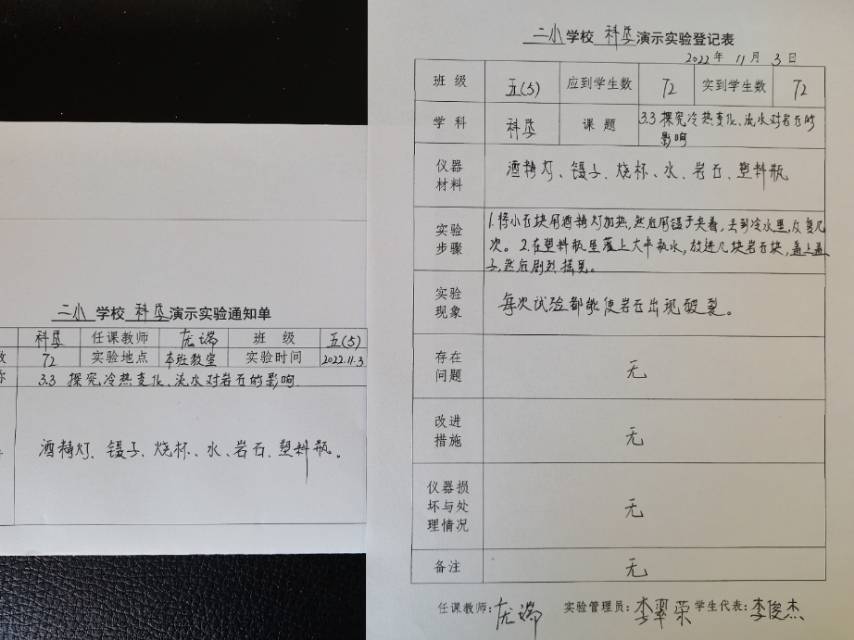 二小学校 科学演示实验通知单
科学 任课教师 龙端 班级 五(5)
数 72 实验地点 本班教室 实验时间 2022.11.3
称 3.3 探究冷热变化、流水对岩石的影响
酒精灯、镊子、烧杯、水、岩石、塑料瓶。
二小学校 科学演示实验登记表
2022年 11月 3日
班级 五(5) 应到学生数 72 实到学生数 72
学科 科学 课题 3.3 探究冷热变化、流水对岩石的
影响
仪器
材料
酒精灯、镊子、烧杯、水、岩石、塑料瓶
实验
步骤
1.将小石块用酒精灯加热,然后用镊子夹着,去到冷水里,反复几
次。2.在塑料瓶里灌上大半瓶水,放进几块岩石块,盖上盖
子,然后剧烈摇晃。
实验
现象
每次试验都能使岩石出现破裂。
存在
问题
无
改进
措施
无
仪器损
坏与处
理情况
无
备注 无
任课教师:龙端 实验管理员:李翠荣 学生代表:李俊杰